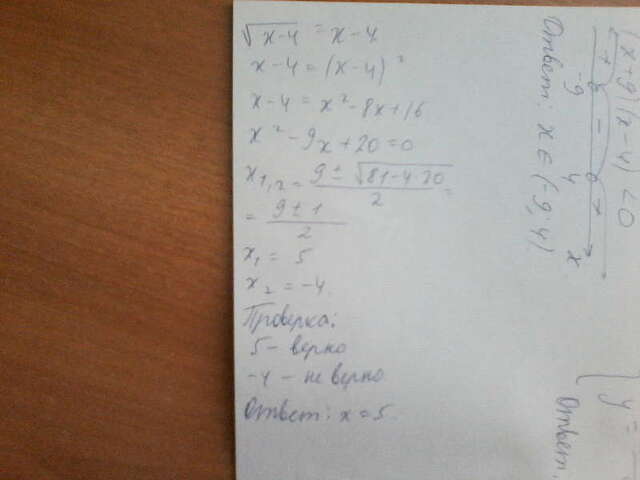 √x-4 = x-4
x-4 = (x-4)²
x-4 = x²-8x+16
x²-9x+20=0
x1,2 = 9 ± √81-4·20 / 2 =
= 9 ± 1 / 2
x1 = 5
x2 = -4
Проверка:
5 - верно
-4 - не верно
Ответ: x = 5
(x+9)(x-4) < 0
+ - +
-9 4 x
Ответ: x ∈ (-9; 4)
y =
Ответ.